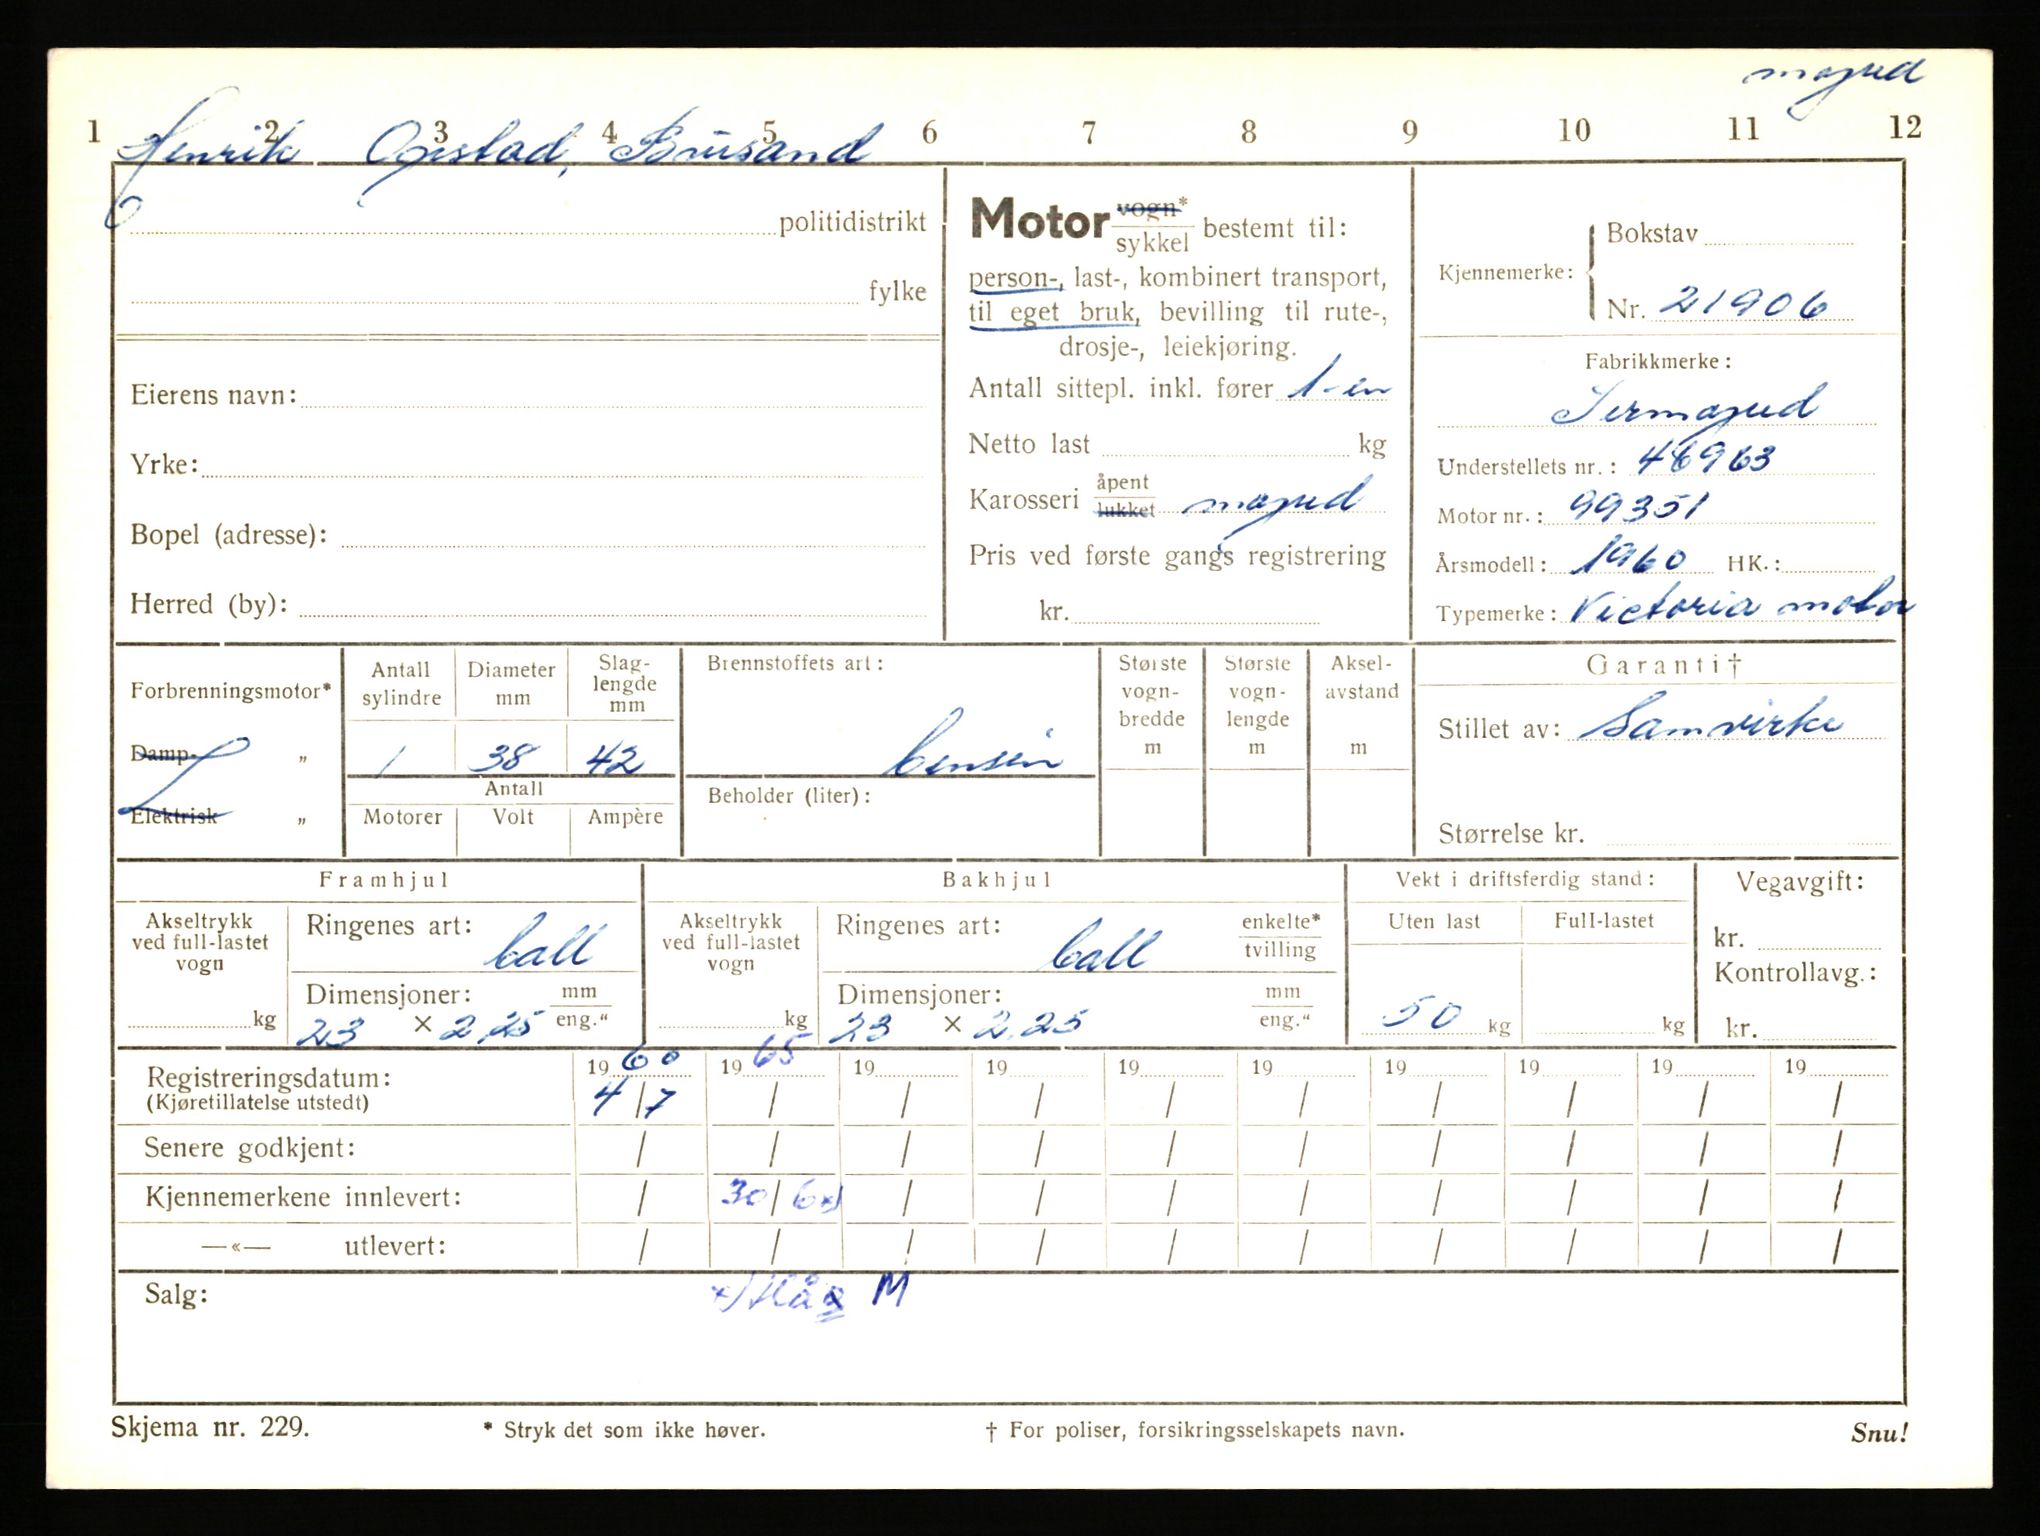 moped
1 2 3 4 5 6 7 8 9 10 11 12
Henrik Ogestad, Brusand
politidistrikt
fylke
Eierens navn:
Yrke:
Bopel (adresse):
Herred (by):
Motor vogn* sykkel bestemt til:
person-, last-, kombinert transport,
til eget bruk, bevilling til rute-,
drosje-, leiekjøring.
Antall sittepl. inkl. fører 1-en
Netto last kg
Karosseri åpent lukket moped
Pris ved første gangs registrering
kr.
Kjennemerke: Bokstav
Nr. 21906
Fabrikkmerke:
Sirmoped
Understellets nr.: 46963
Motor nr.: 99351
Årsmodell: 1960 HK.:
Typemerke: Victoria motor
Forbrenningsmotor*
Damp- „
Elektrisk „
Antall sylindre Diameter mm Slag-lengde mm
1 38 42
Antall
Motorer Volt Ampère
Brennstoffets art:
bensin
Beholder (liter):
Største vogn-bredde m
Største vogn-lengde m
Aksel-avstand m
Garanti†
Stillet av: Samvirke
Størrelse kr.
Framhjul
Akseltrykk ved full-lastet vogn
kg
Ringenes art: ball
Dimensjoner: mm eng."
23 × 2,25
Bakhjul
Akseltrykk ved full-lastet vogn
kg
Ringenes art: ball enkelte* tvilling
Dimensjoner: mm eng."
23 × 2,25
Vekt i driftsferdig stand:
Uten last Full-lastet
50 kg kg
Vegavgift:
kr.
Kontrollavg.:
kr.
1960 1965 19 19 19 19 19 19 19 19
Registreringsdatum: 4/7 / / / / / / / / /
(Kjøretillatelse utstedt)
Senere godkjent: / / / / / / / / / /
Kjennemerkene innlevert: / 30/6x) / / / / / / / /
—«— utlevert: / / / / / / / / / /
Salg:
x) M
Skjema nr. 229.
* Stryk det som ikke høver.
† For poliser, forsikringsselskapets navn.
Snu!